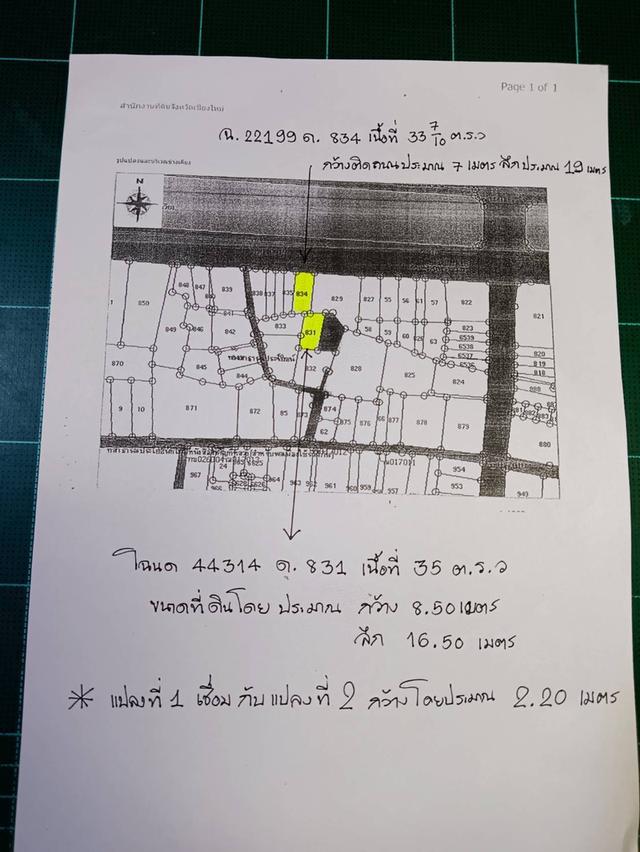 Page 1 of 1
สำนักงานที่ดินจังหวัดเชียงใหม่
ฉ. 22199 ด. 834 เนื้อที่ 33 7/10 ต.ร.ว
รูปแปลงและบริเวณข้างเคียง
กว้างติดถนนประมาณ 7 เมตร ลึกประมาณ 19 เมตร
N
848 847 839 838 837 835 834 829 827 55 56 61 57 822 821
850 841 833 831 58 59 60 62 63 823
849 846 842 6539
6538
ทางสาธารณประโยชน์ 6537 820
845 844 832 828 825 824 819
870 818
9 10 871 872 85 873 874 875 876 66 877 878 879 880
62
967 24 6625 964 963 962 961 960 959 958 957 954
953 949
โฉนด 44314 ดุ. 831 เนื้อที่ 35 ต.ร.ว
ขนาดที่ดินโดย ประมาณ กว้าง 8.50 เมตร
ลึก 16.50 เมตร
* แปลงที่ 1 เชื่อม กับ แปลงที่ 2 กว้างโดยประมาณ 2.20 เมตร